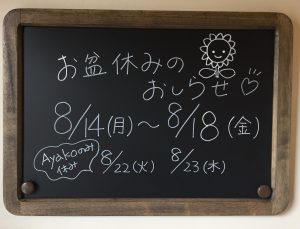 お盆休みの
おしらせ♡
8/14(月)～8/18(金)
Ayakoのみ
休み
8/22(火) 8/23(水)